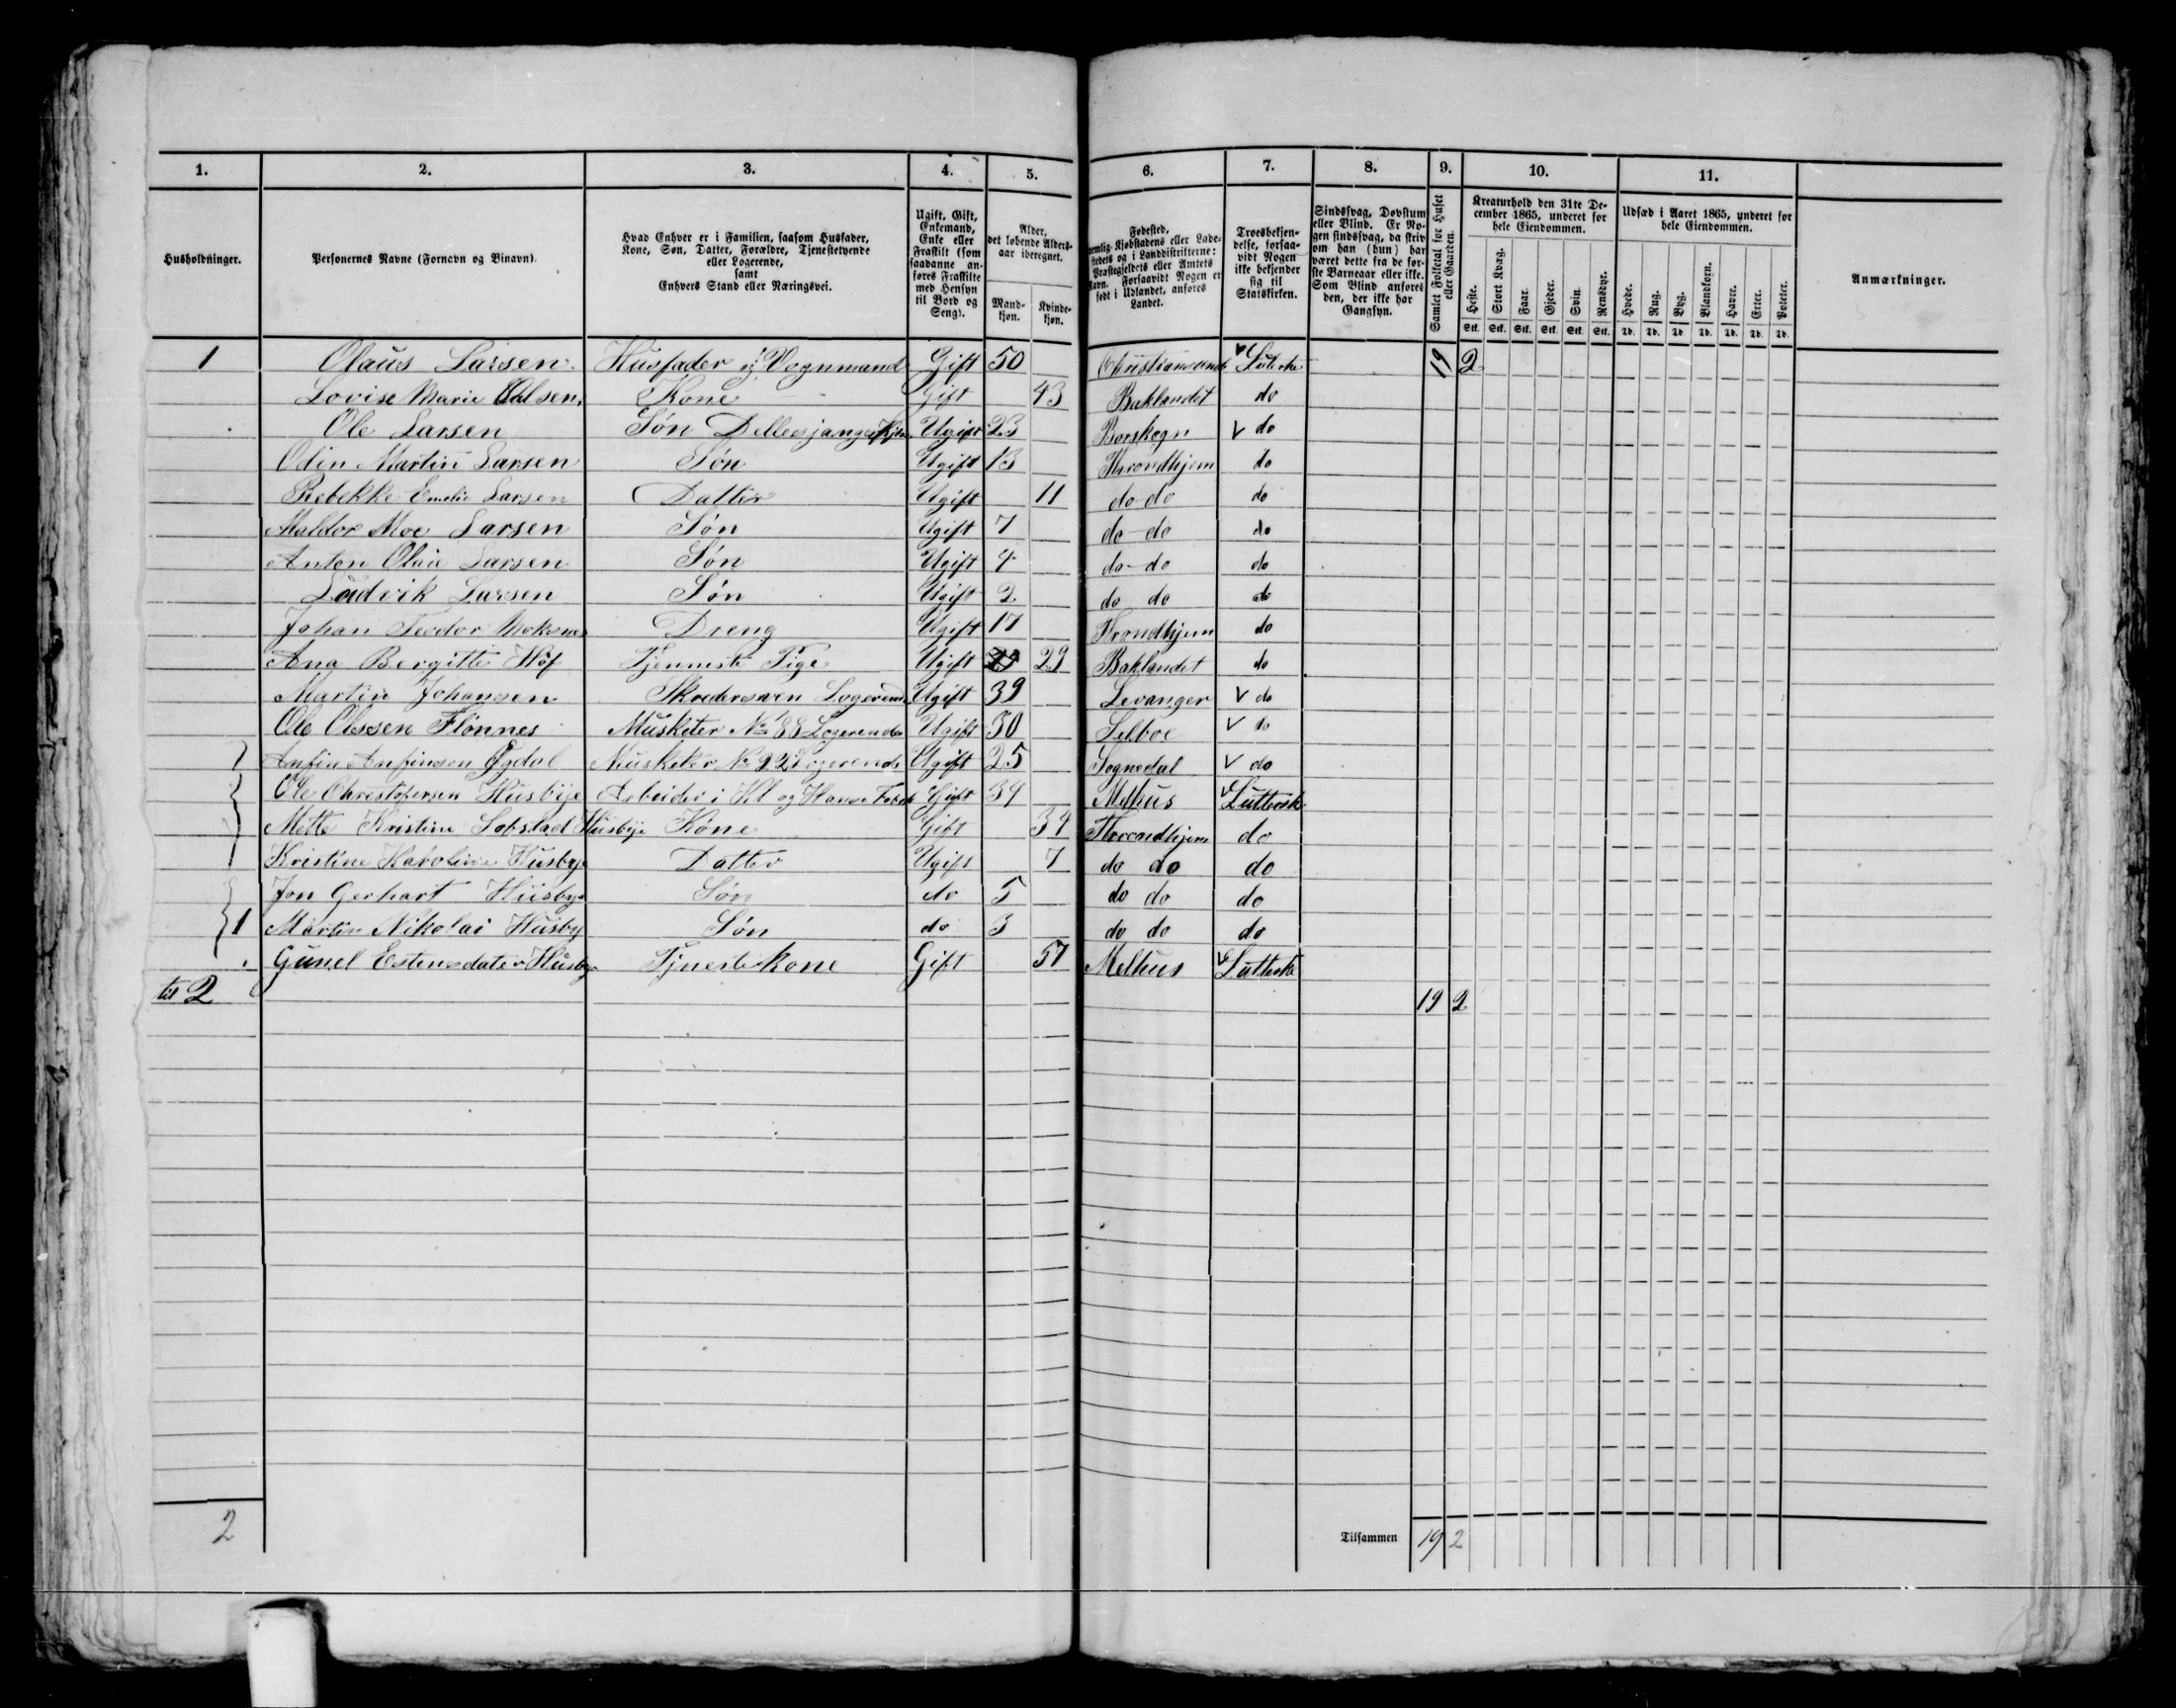 1. 2. 3. 4. 5. 6. 7. 8. 9. 10. 11.
Husholdninger.
Personernes Navne (Fornavn og Binavn).
Hvad Enhver er i Familien, saasom Husfader,
Kone, Søn, Datter, Forældre, Tjenestetyende
eller Logerende,
samt
Enhvers Stand eller Næringsvei.
Ugift, Gift,
Enkemand,
Enke eller
Fraskilt (som
saadanne an-
føres Fraskilte
med Hensyn
til Bord og
Seng).
Alder,
det løbende Alders-
aar iberegnet.
Mand-
kjøn.
Kvinde-
kjøn.
Fødested,
nemlig Kjøbstadens eller Lade-
stedets og i Landdistrikterne:
Præstegjeldets eller Amtets
Navn. Forsaavidt Nogen er
født i Udlandet, anføres
Landet.
Troesbekjen-
delse, forsaa-
vidt Nogen
ikke bekjender
sig til
Statskirken.
Sindssvag, Døvstum
eller Blind. Er No-
gen sindssvag, da skriv
om han (hun) har
været dette fra de før-
ste Barneaar eller ikke.
Som Blind anføres
den, der ikke har
Gangsyn.
Samlet Folketal for Huset
eller Gaarden.
Kreaturhold den 31te De-
cember 1865, underet for
hele Eiendommen.
Heste. Stort Kvæg. Faar. Gjeder. Svin. Rensdyr.
Stk. Stk. Stk. Stk. Stk. Stk.
Udsæd i Aaret 1865, underet for
hele Eiendommen.
Hvede. Rug. Byg. Blandkorn. Havre. Erter. Poteter.
Td. Td. Td. Td. Td. Td. Td.
Anmærkninger.
1 Olaus Larsen. Husfader og Vognmand Gift 50 Christiansund Luterske 19 2
Lovise Marie Olsen. Kone Gift 43 Baklandet do
Ole Larsen Søn Ugift 23 Borskogn v do
Odin Martin Larsen Søn Ugift 13 Throndhjem do
Rebekke Emelie Larsen Datter Ugift 11 do do do
Haldor Moe Larsen Søn Ugift 7 do do do
Anton Olaie Larsen Søn Ugift 4 do do do
Ludvik Larsen Søn Ugift 2 do do do
Johan Teodor Dreng Ugift 17 Trondhjem do
Ana Bergitte Hof Tjenneste Pige Ugift 29 Baklandet do
Martin Johansen Skredersven Logerende Ugift 39 Levanger v do
Ole Olsen Flønnes Musketer No 88 Logerende Ugift 30 Selboe v do
1 Anfin Anfinsen Øgdal Musketer No 92 Logerende Ugift 25 Sognedal v do
Ole Christofersen Husbye Arbeider i Kl og Hampe Fabrk Gift 34 Melhus v Luttersk
Mette Kristine Lobstad Husbye Kone Gift 34 Throndhjem do
Kristine Karoline Husbye Datter Ugift 7 do do do
Jon Gerhart Husbye Søn do 5 do do do
1 Martin Nikolai Husby Søn do 3 do do do
Gunel Estensdater Husbye Tjnestekone Gift 57 Melhus v Lutterske
til 2 19 2
2 Tilsammen 19 2